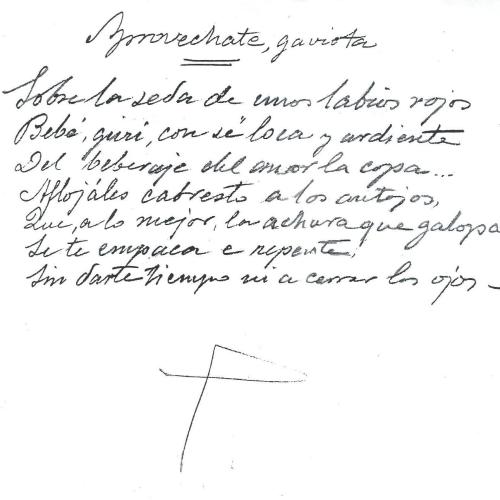 Aprovechate, gaviota
Sobre la seda de unos labios rojos
Bebé, gurí, con sé loca y ardiente
Del beberaje del amor la copa...
Aflojáles cabresto a los antojos,
Que, a lo mejor, la achura que galopa
Se te empaca e repente,
Sin darte tiempo ni a cerrar los ojos -